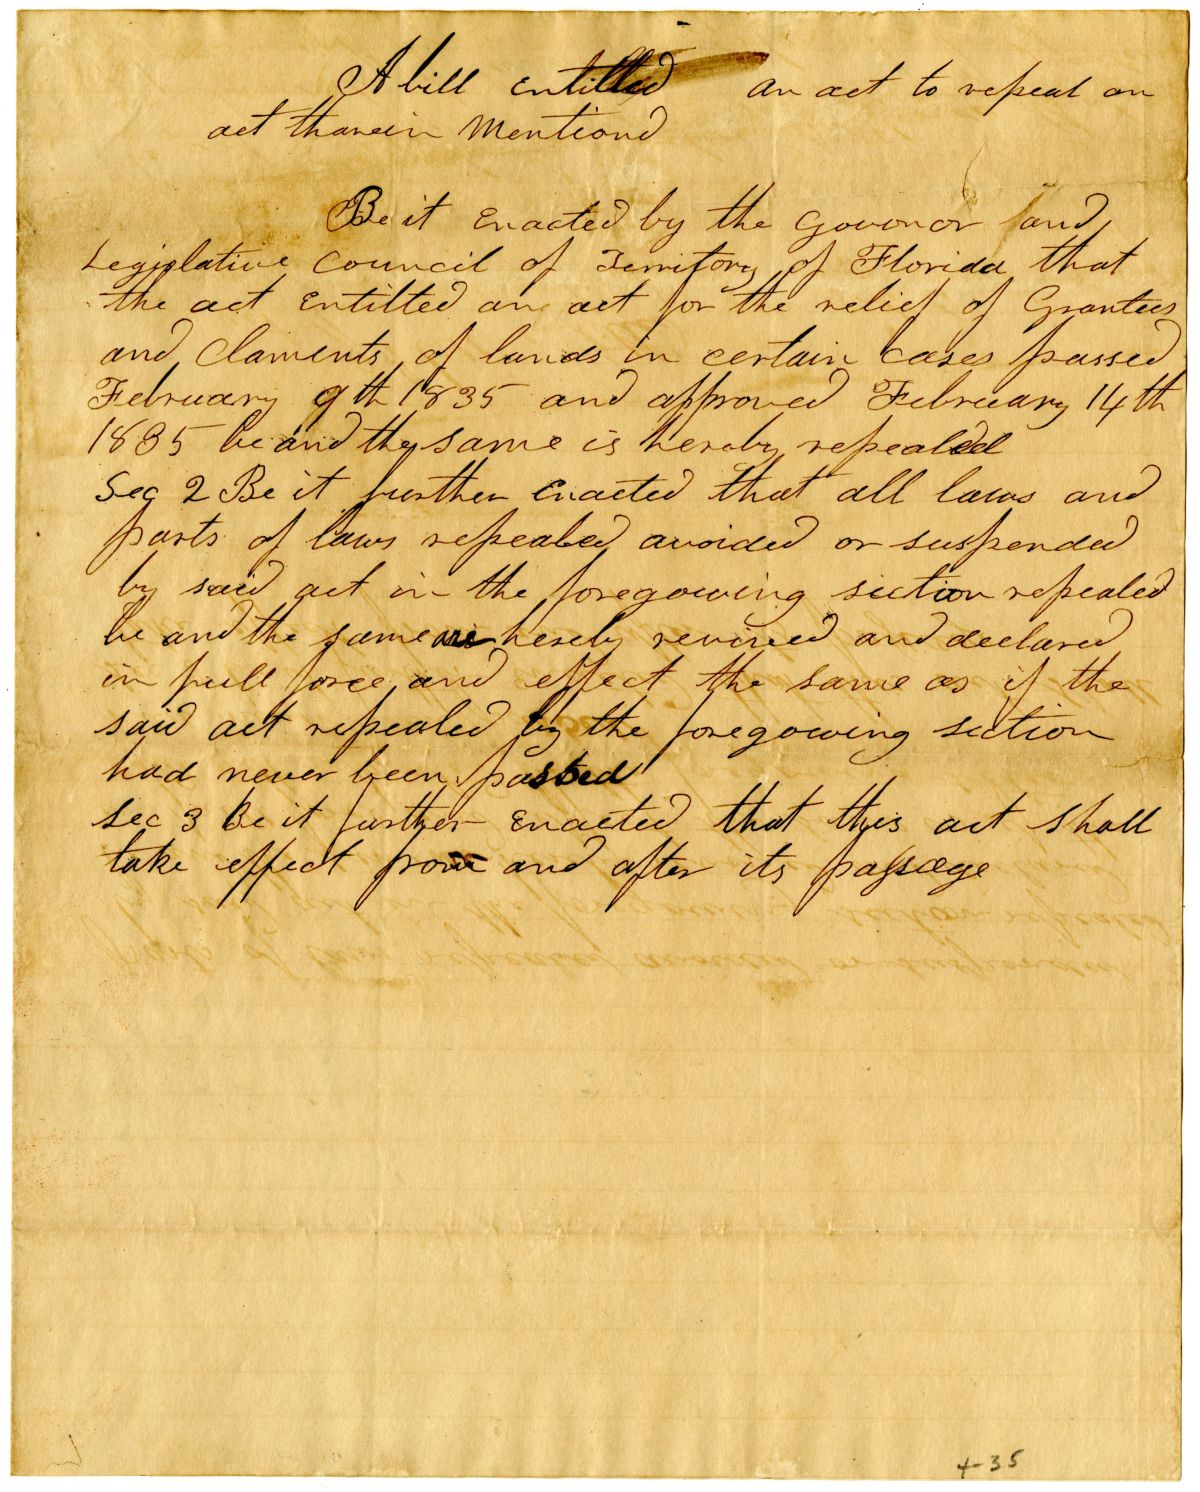 A bill entitled an act to repeal an
act tharein Mentiond
Be it Enacted by the Govonor and
Legislative Council of Territory of Florida that
the act entilted an act for the relief of Grantees
and Claments of lands in certain cases passed
February 9th 1835 and approved February 14th
1835 be and the same is hereby repealed
Sec 2 Be it further Enacted that all laws and
parts of laws repealed avoided or suspended
by said act in the foregowing section repealed
be and the same are hereby revived and declared
in full force and effect the same as if the
said act repealed by the foregowing section
had never been passed
Sec 3 Be it further Enacted that this act shall
take effect from and after its passage
4-35